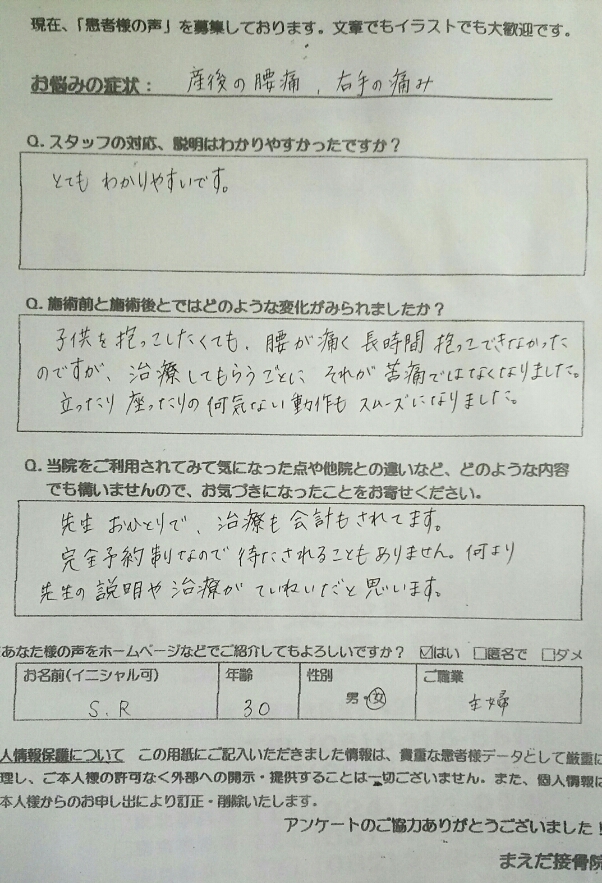 現在、「患者様の声」を募集しております。文章でもイラストでも大歓迎です。
お悩みの症状： 産後の腰痛、右手の痛み
Q. スタッフの対応、説明はわかりやすかったですか？
とても わかりやすいです。
Q. 施術前と施術後とではどのような変化がみられましたか？
子供を抱っこしたくても、腰が痛く 長時間 抱っこできなかった
のですが、治療してもらうごとに それが苦痛ではなくなりました。
立ったり 座ったりの何気ない動作も スムーズになりました。
Q. 当院をご利用されてみて気になった点や他院との違いなど、どのような内容
でも構いませんので、お気づきになったことをお寄せください。
先生 おひとりで、治療も会計もされてます。
完全予約制なので待たされることもありません。何より
先生の説明や治療が ていねいだと思います。
あなた様の声をホームページなどでご紹介してもよろしいですか？ ☑はい □匿名で □ダメ
お名前(イニシャル可) 年齢 性別 ご職業
S.R 30 男・女 主婦
人情報保護について この用紙にご記入いただきました情報は、貴重な患者様データとして厳重に
理し、ご本人様の許可なく外部への開示・提供することは一切ございません。また、個人情報は
本人様からのお申し出により訂正・削除いたします。
アンケートのご協力ありがとうございました！
まえだ接骨院